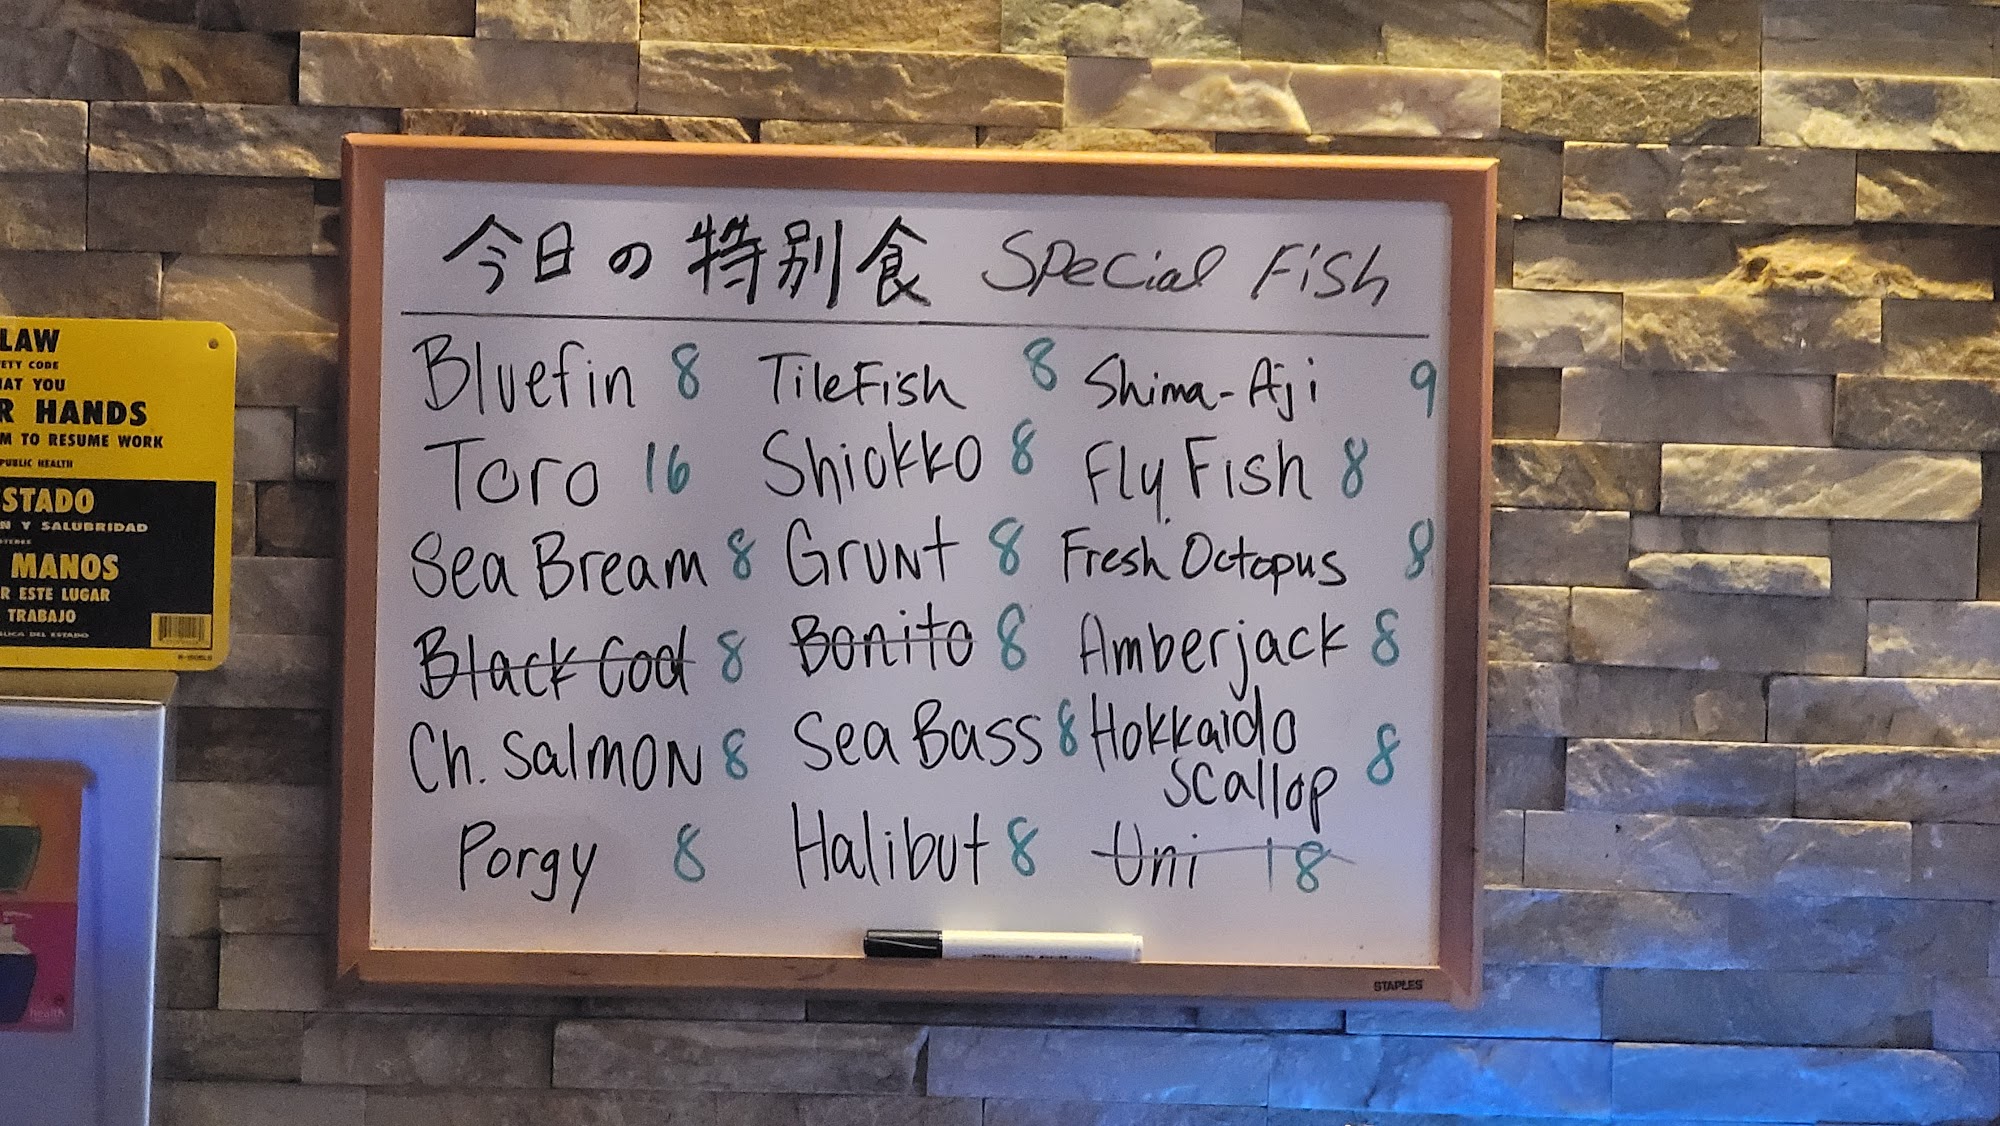 今日の特別食 Special Fish
Bluefin 8 TileFish 8 Shima-Aji 9
Toro 16 Shiokko 8 Fly Fish 8
Sea Bream 8 Grunt 8 Fresh Octopus 8
Black Cod 8 Bonito 8 Amberjack 8
Ch. Salmon 8 Sea Bass 8 Hokkaido
Scallop 8
Porgy 8 Halibut 8 Uni 18
STAPLES
LAW
ETY CODE
HAT YOU
R HANDS
M TO RESUME WORK
PUBLIC HEALTH
STADO
N Y SALUBRIDAD
MANOS
R ESTE LUGAR
TRABAJO
LICA DEL ESTADO
health